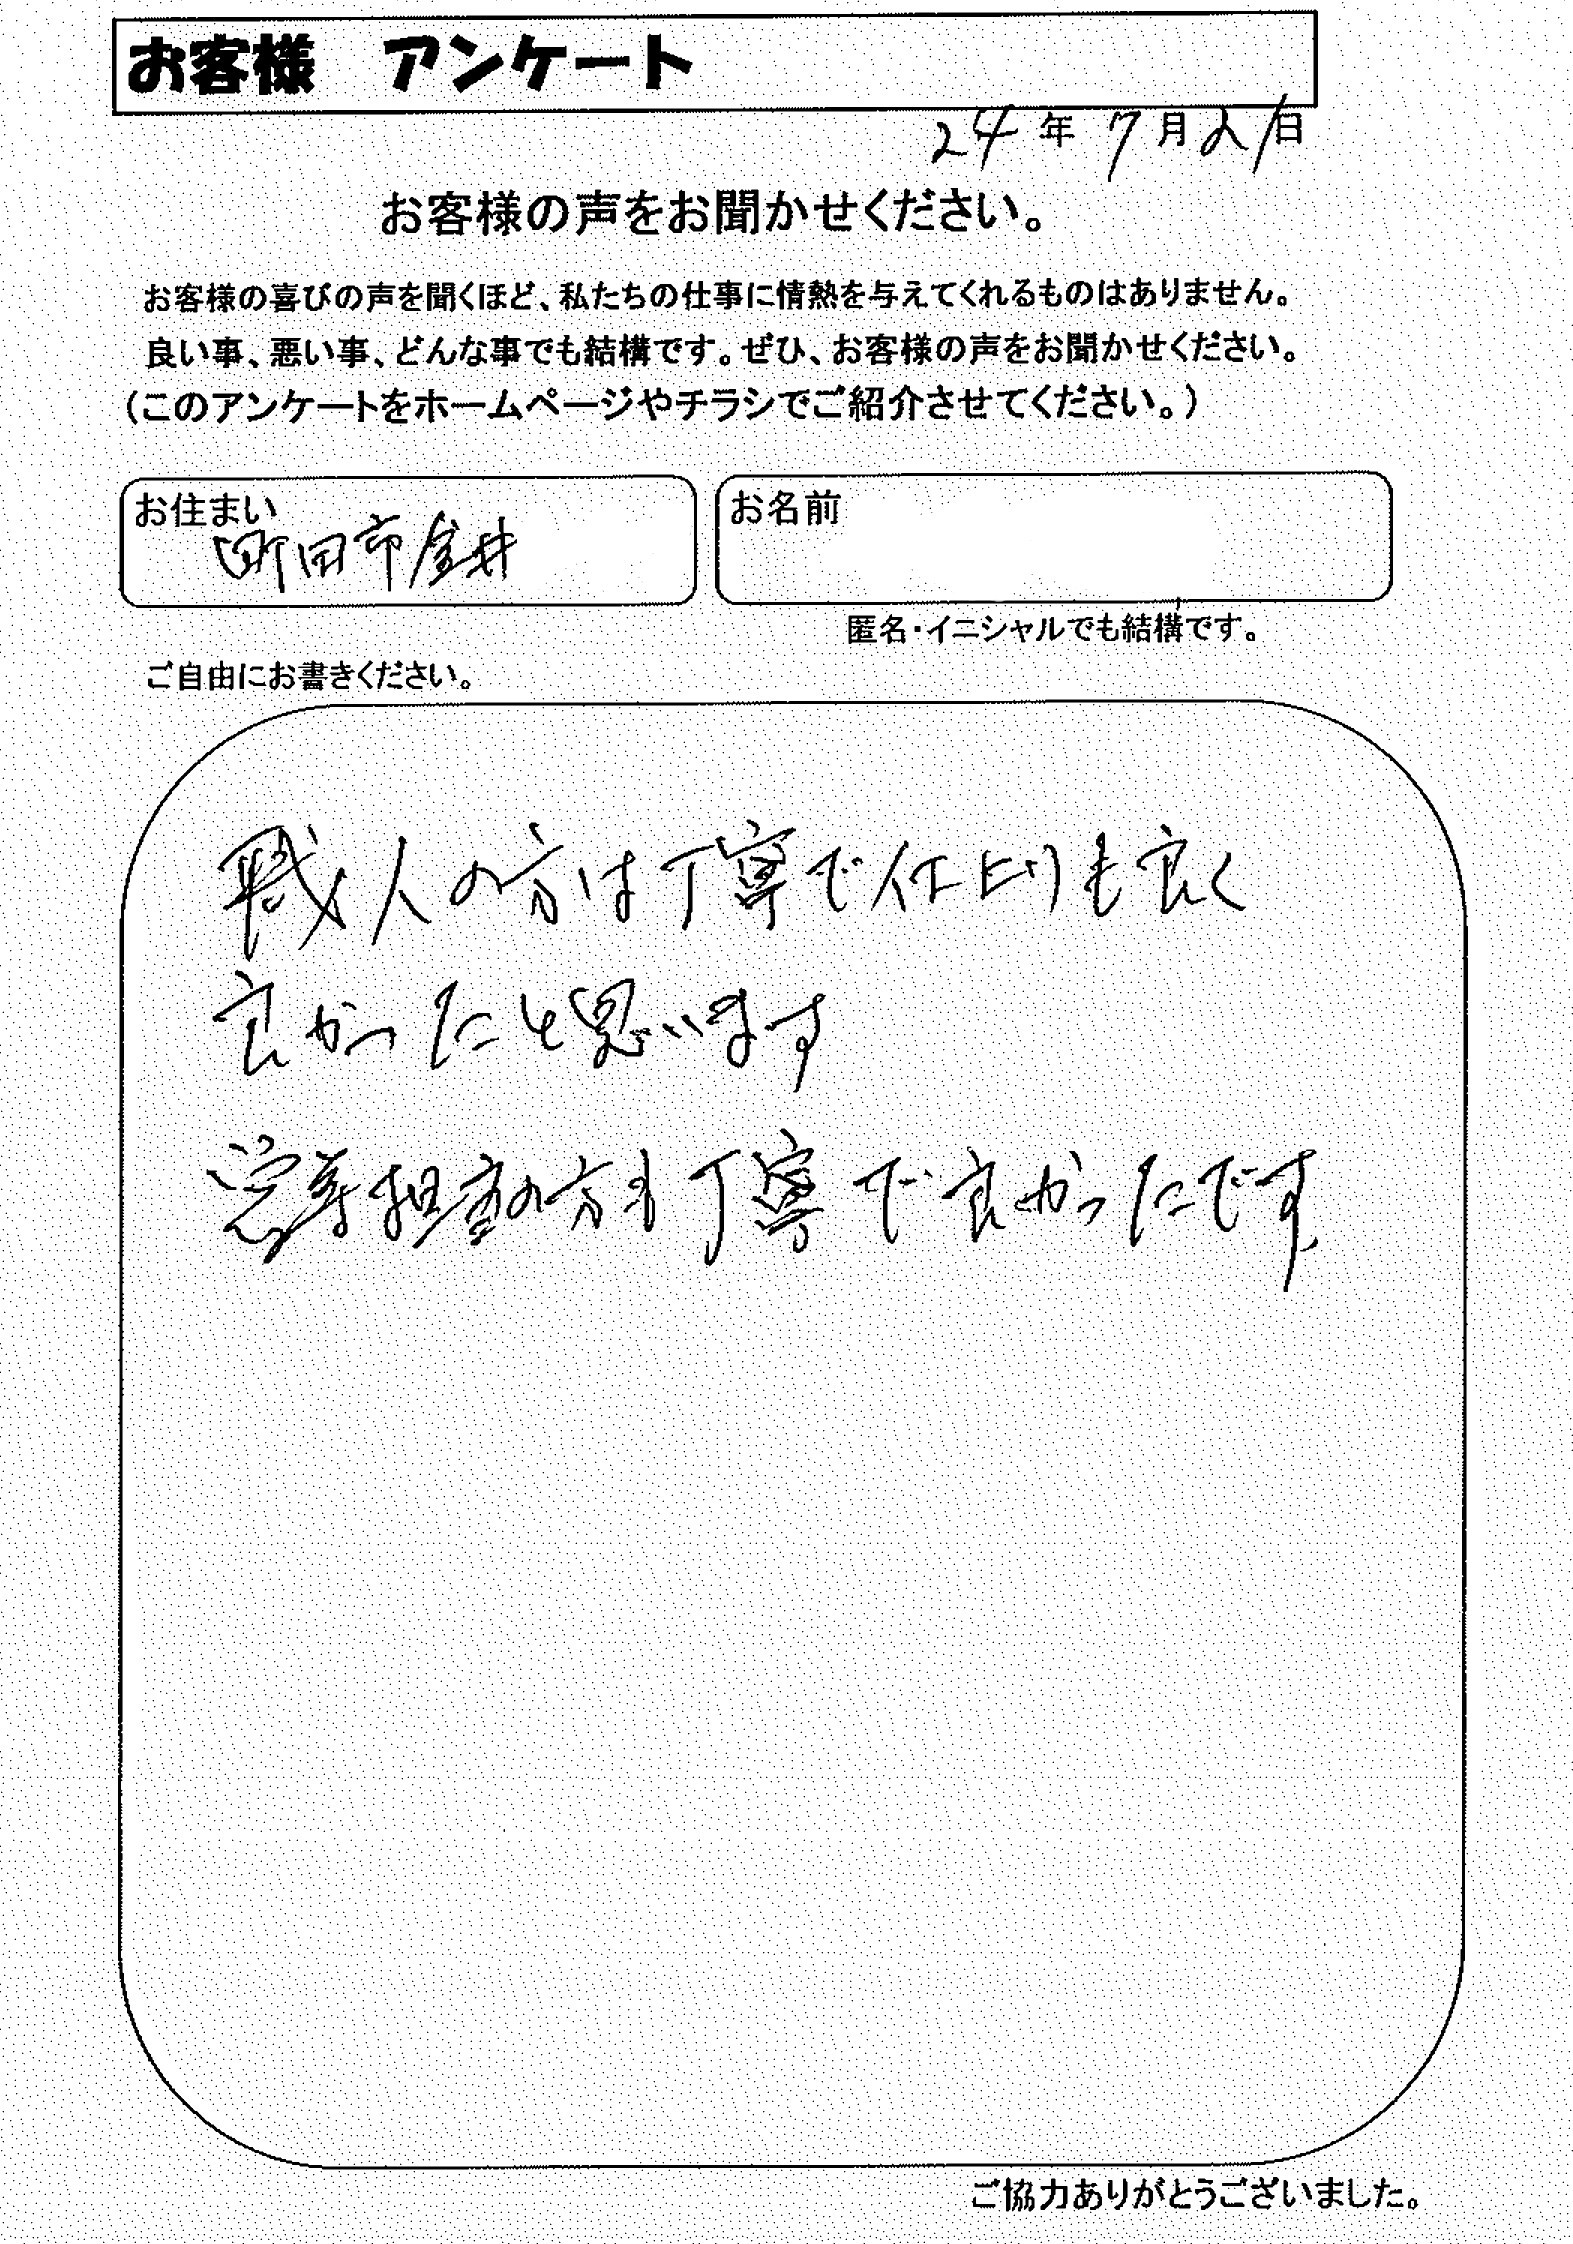 お客様 アンケート
24年7月21日
お客様の声をお聞かせください。
お客様の喜びの声を聞くほど、私たちの仕事に情熱を与えてくれるものはありません。
良い事、悪い事、どんな事でも結構です。ぜひ、お客様の声をお聞かせください。
(このアンケートをホームページやチラシでご紹介させてください。)
お住まい
町田市金井
お名前
匿名・イニシャルでも結構です。
ご自由にお書きください。
職人の方は丁寧で仕上りも良く
良かったと思います
営業担当の方も丁寧で良かったです、
ご協力ありがとうございました。